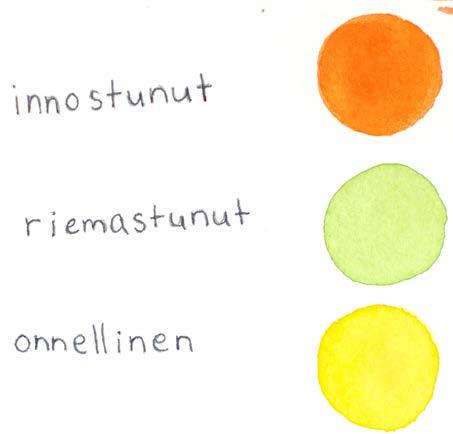 innostunut
riemastunut
onnellinen